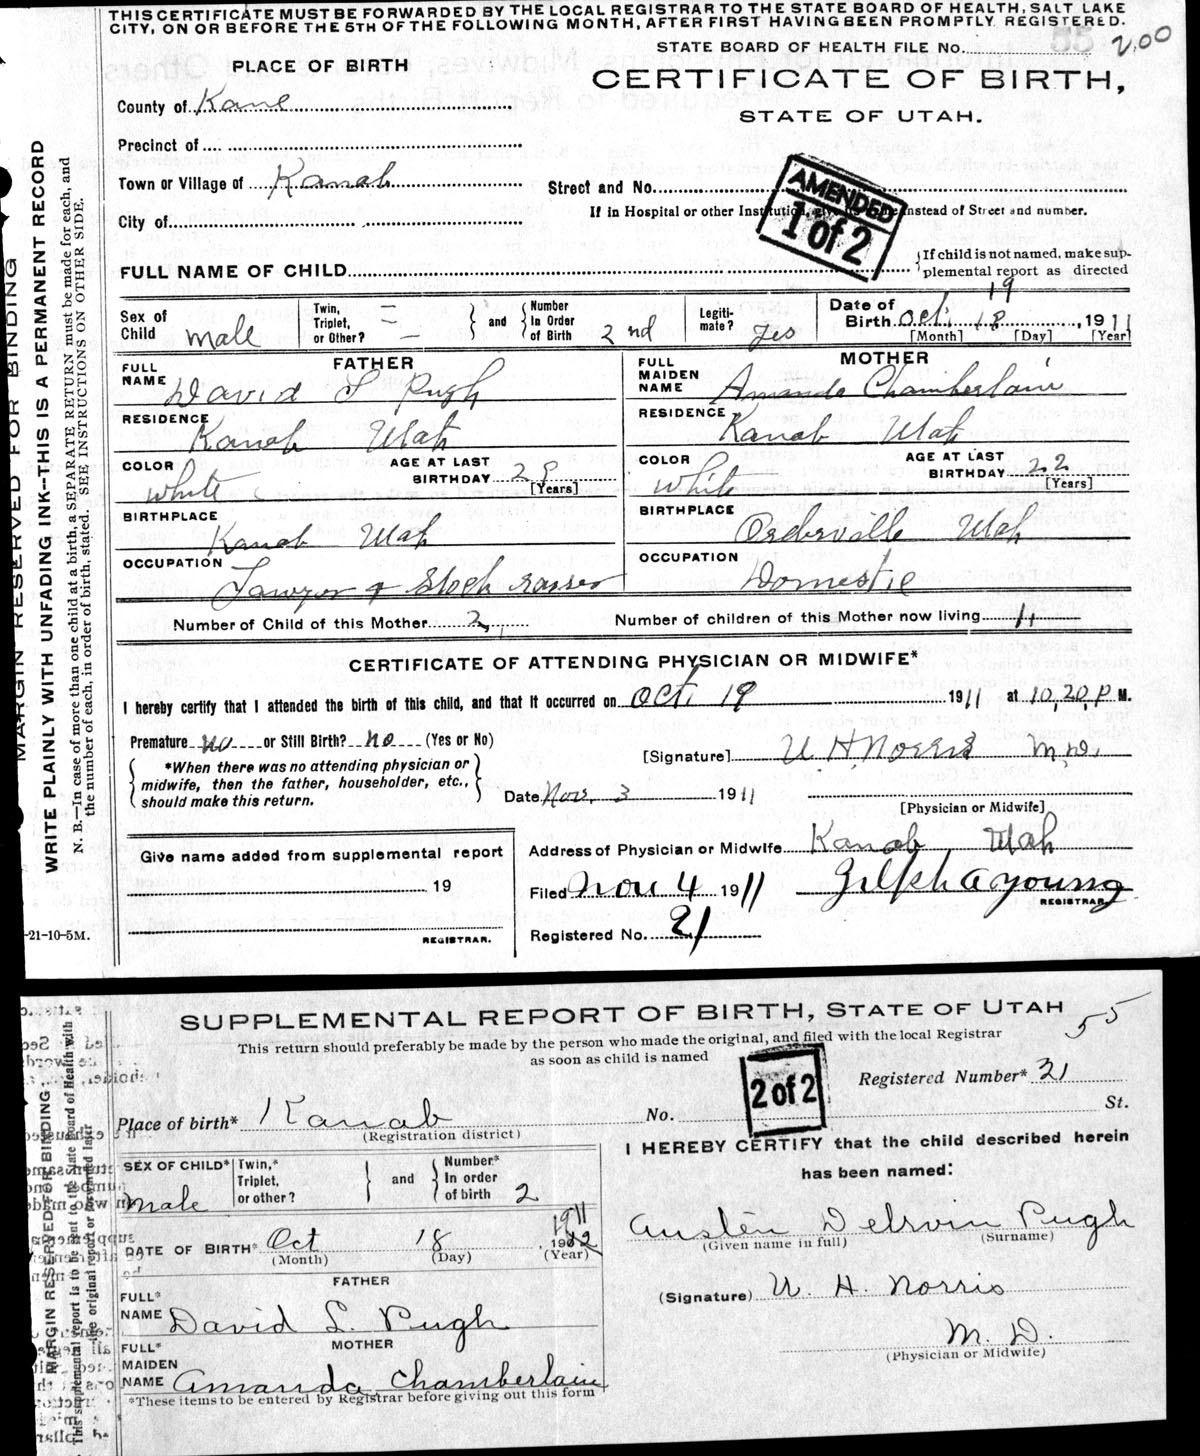 THIS CERTIFICATE MUST BE FORWARDED BY THE LOCAL REGISTRAR TO THE STATE BOARD OF HEALTH, SALT LAKE
CITY, ON OR BEFORE THE 5TH OF THE FOLLOWING MONTH, AFTER FIRST HAVING BEEN PROMPTLY REGISTERED.
STATE BOARD OF HEALTH FILE No. 200
PLACE OF BIRTH
CERTIFICATE OF BIRTH,
STATE OF UTAH.
County of Kane
Precinct of
Town or Village of Kanab
Street and No.
AMENDED
1 of 2
City of
If in Hospital or other Institution, give its name instead of Street and number.
FULL NAME OF CHILD
If child is not named, make sup-
plemental report as directed
Sex of Child male
Twin, Triplet, or Other? —
and
Number In Order of Birth 2nd
Legiti-mate? Yes
Date of Birth Oct. 18 19, 1911
[Month] [Day] [Year]
FATHER
FULL NAME David L Pugh
RESIDENCE Kanab Utah
COLOR White
AGE AT LAST BIRTHDAY 29 [Years]
BIRTHPLACE Kanab Utah
OCCUPATION Lawyer & Stock raiser
MOTHER
FULL MAIDEN NAME Amanda Chamberlain
RESIDENCE Kanab Utah
COLOR White
AGE AT LAST BIRTHDAY 22 [Years]
BIRTHPLACE Orderville Utah
OCCUPATION Domestic
Number of Child of this Mother 2
Number of children of this Mother now living 1
CERTIFICATE OF ATTENDING PHYSICIAN OR MIDWIFE*
I hereby certify that I attended the birth of this child, and that it occurred on Oct. 19 1911 at 10,20 P M.
Premature no or Still Birth? no (Yes or No)
[Signature] U H Norris M.D.
*When there was no attending physician or
midwife, then the father, householder, etc.,
should make this return.
Date Nov. 3 1911
[Physician or Midwife]
Give name added from supplemental report
19
REGISTRAR.
Address of Physician or Midwife Kanab, Utah
Filed Nov 4 1911
Young
REGISTRAR
Registered No. 21
-21-10-5M.
MARGIN RESERVED FOR BINDING
WRITE PLAINLY WITH UNFADING INK--THIS IS A PERMANENT RECORD
N. B.—In case of more than one child at a birth, a SEPARATE RETURN must be made for each, and
the number of each, in order of birth, stated. SEE INSTRUCTIONS ON OTHER SIDE.
SUPPLEMENTAL REPORT OF BIRTH, STATE OF UTAH
55
This return should preferably be made by the person who made the original, and filed with the local Registrar
as soon as child is named
2 of 2
Registered Number* 21
Place of birth* Kanab No. St.
(Registration district)
SEX OF CHILD* Male
Twin,* Triplet, or other?
and
Number* In order of birth 2
DATE OF BIRTH* Oct 18, 1911
(Month) (Day) (Year)
FATHER
FULL* NAME David L. Pugh
MOTHER
FULL* MAIDEN NAME Amanda Chamberlain
*These items to be entered by Registrar before giving out this form
I HEREBY CERTIFY that the child described herein
has been named:
Austin Delrvin Pugh
(Given name in full) (Surname)
(Signature) U. H. Norris
M. D.
(Physician or Midwife)
MARGIN RESERVED FOR BINDING
This supplemental report is to be sent to the State Board of Health with
the original report or forwarded later